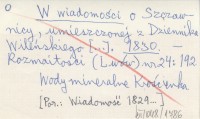 O
W wiadomości o Szczaw-
nicy, umieszczonej z Dziennika
Wileńskiego [...]. 1830. –
Rozmaitości (Lwów) nr 24: 192
Wody mineralne Krościenka
[Por.: Wiadomość 1829...]